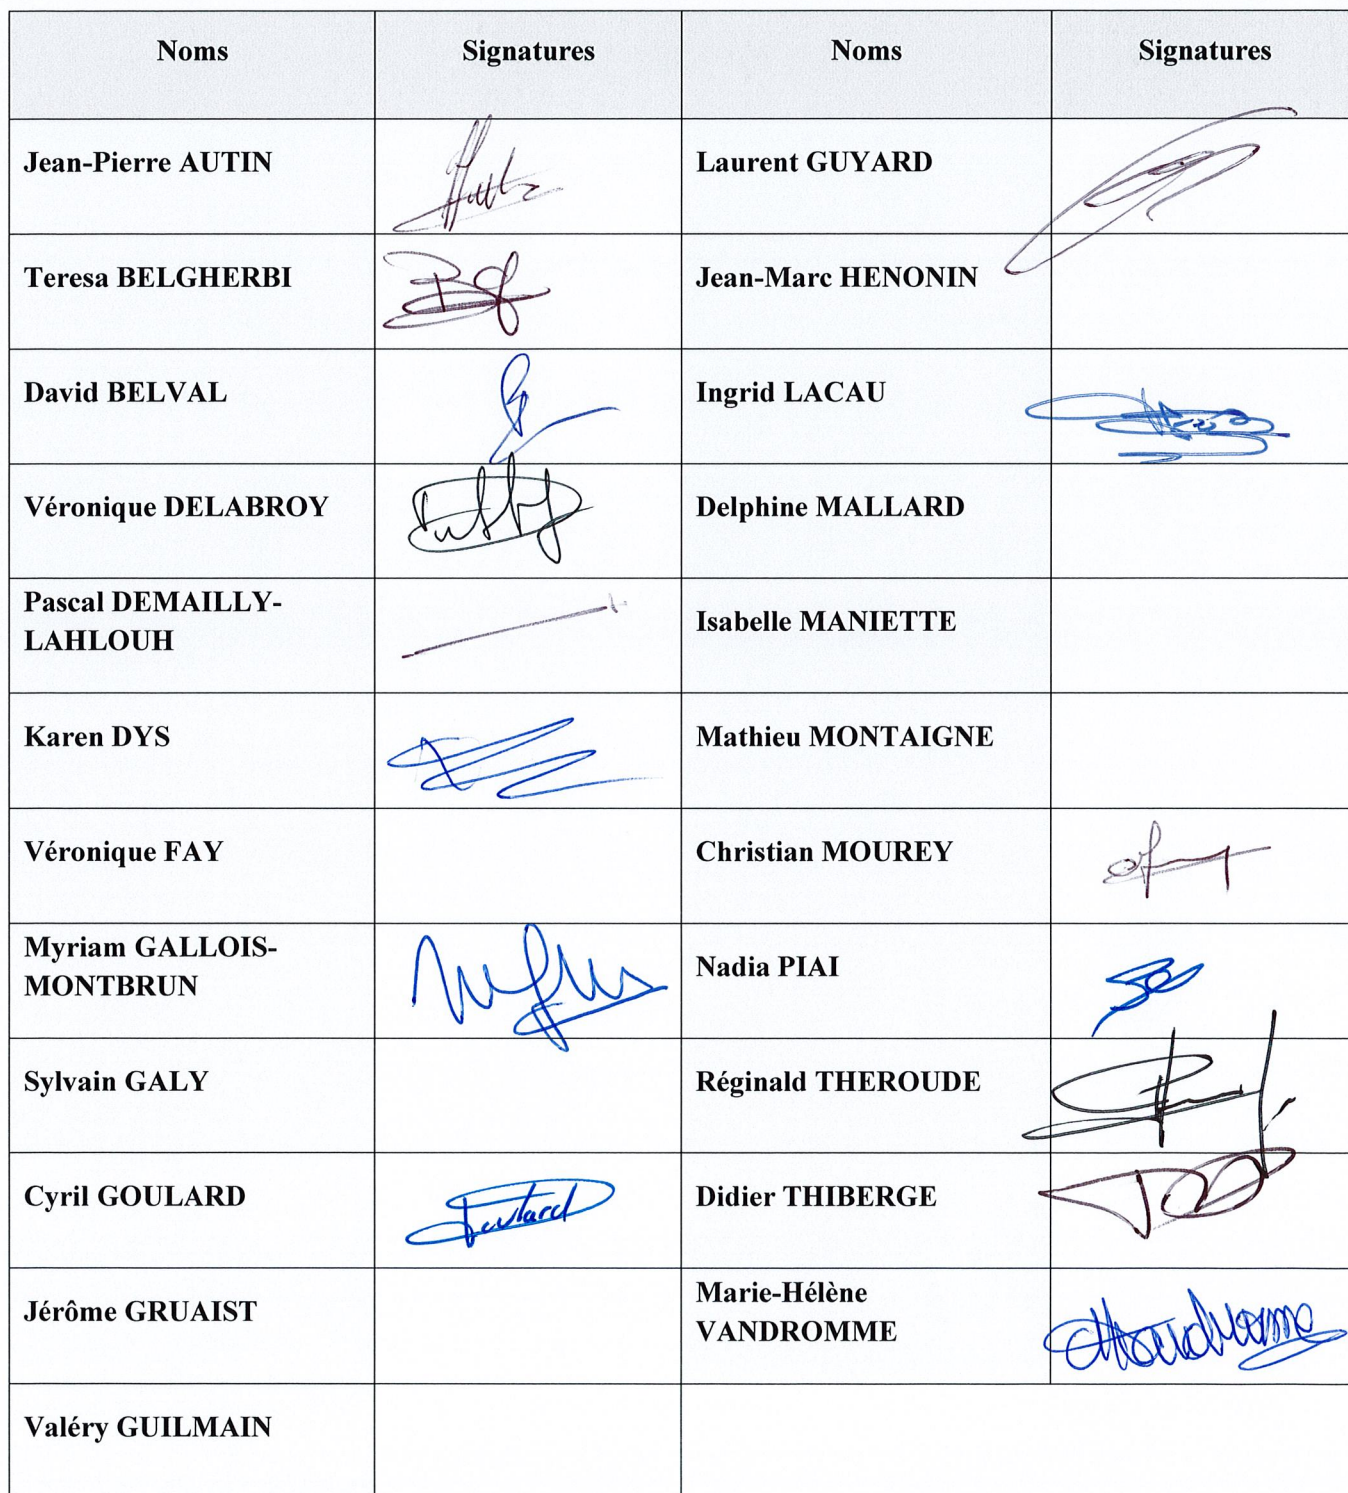 Noms Signatures Noms Signatures
Jean-Pierre AUTIN Laurent GUYARD
Teresa BELGHERBI Jean-Marc HENONIN
David BELVAL Ingrid LACAU
Véronique DELABROY Delphine MALLARD
Pascal DEMAILLY-
LAHLOUH
Isabelle MANIETTE
Karen DYS Mathieu MONTAIGNE
Véronique FAY Christian MOUREY
Myriam GALLOIS-
MONTBRUN
Nadia PIAI
Sylvain GALY Réginald THEROUDE
Cyril GOULARD Goulard Didier THIBERGE
Jérôme GRUAIST
Marie-Hélène
VANDROMME
Valéry GUILMAIN